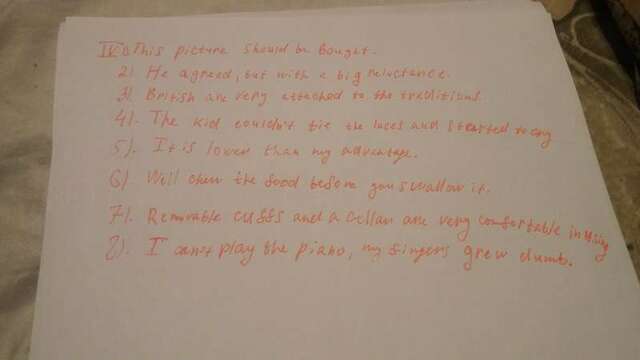 IV 1). This picture should be bought.
2). He agreed, but with a big reluctance.
3). British are very attached to the traditions.
4). The kid couldn't tie the laces and started to cry
5). It is lower than my advantage.
6). Well chew the food before you swallow it.
7). Removable cuffs and a collar are very comfortable in using
8). I can't play the piano, my fingers grew dumb.